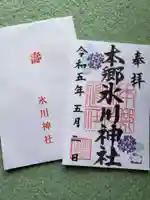 奉拝
本郷氷川神社
令和五年五月二日
氷川神社